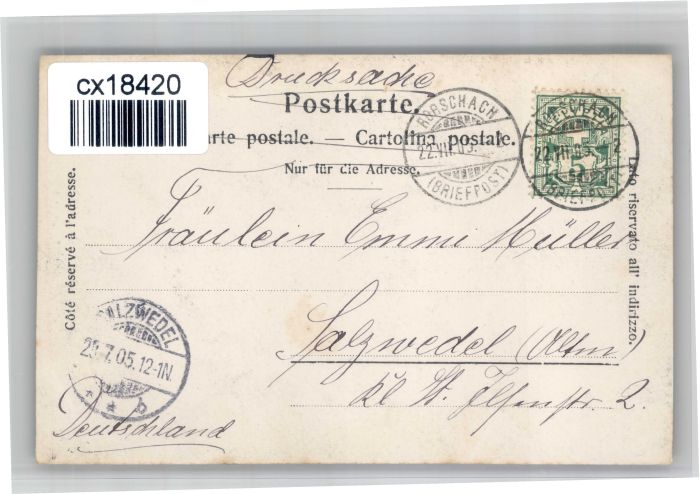 cx18420
Drucksache
Postkarte.
arte postale. — Cartolina postale.
Nur für die Adresse.
RORSCHACH
22.VII.05.
(BRIEFPOST)
SCHACH
22.VII
(BRIEFP
Côté réservé à l'adresse.
Lato riservato all' indirizzo.
Fräulein Emmi Müller
Salzwedel (Altm)
kl. St. Ilsenstr. 2.
SALZWEDEL
23.7.05.12-1N.
* * b
Deutschland